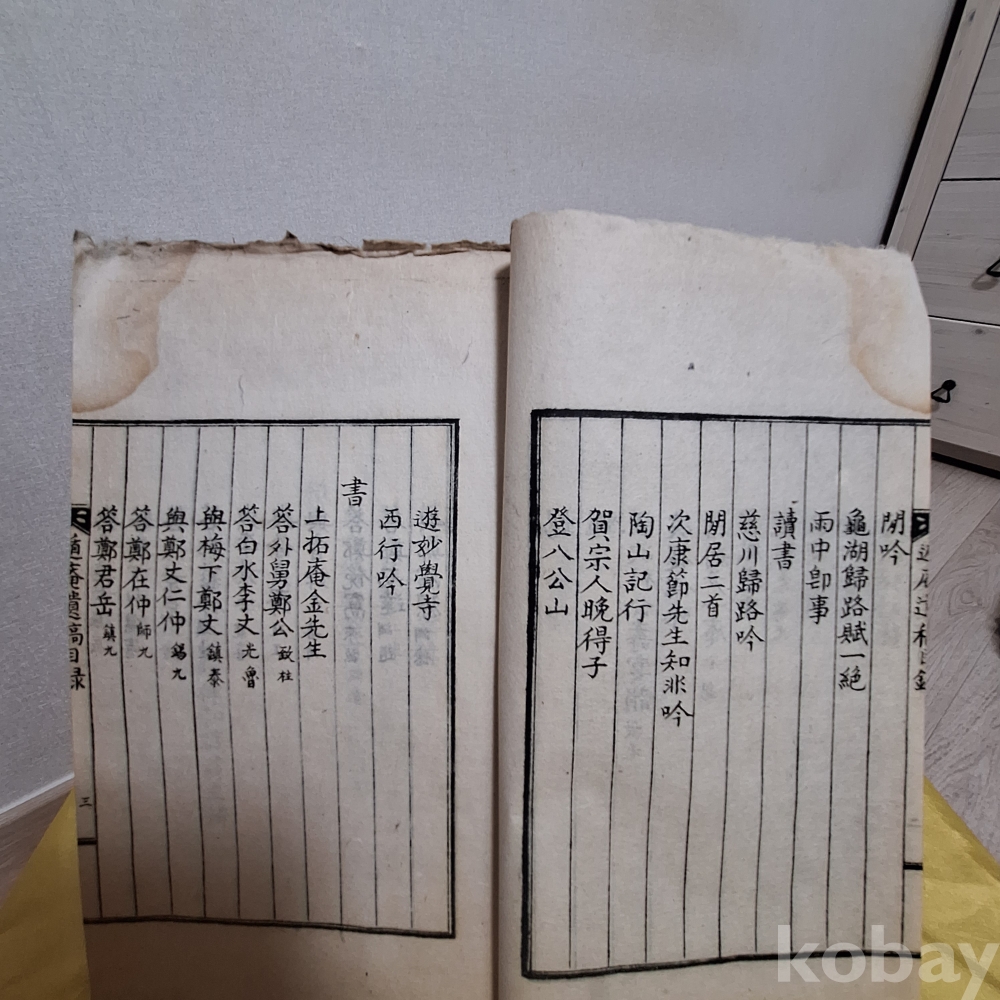 閒吟
龜湖歸路賦一絶
雨中卽事
讀書
慈川歸路吟
閒居二首
次康節先生知非吟
陶山記行
賀宗人晚得子
登八公山
遊妙覺寺
西行吟
書
上拓庵金先生
答外舅鄭公 致柱
答白水李丈 光魯
與梅下鄭丈 鎭泰
與鄭丈仁仲 錫九
答鄭在仲 師九
答鄭君岳 鎭九
遁庵遺稿目录
三
kobay